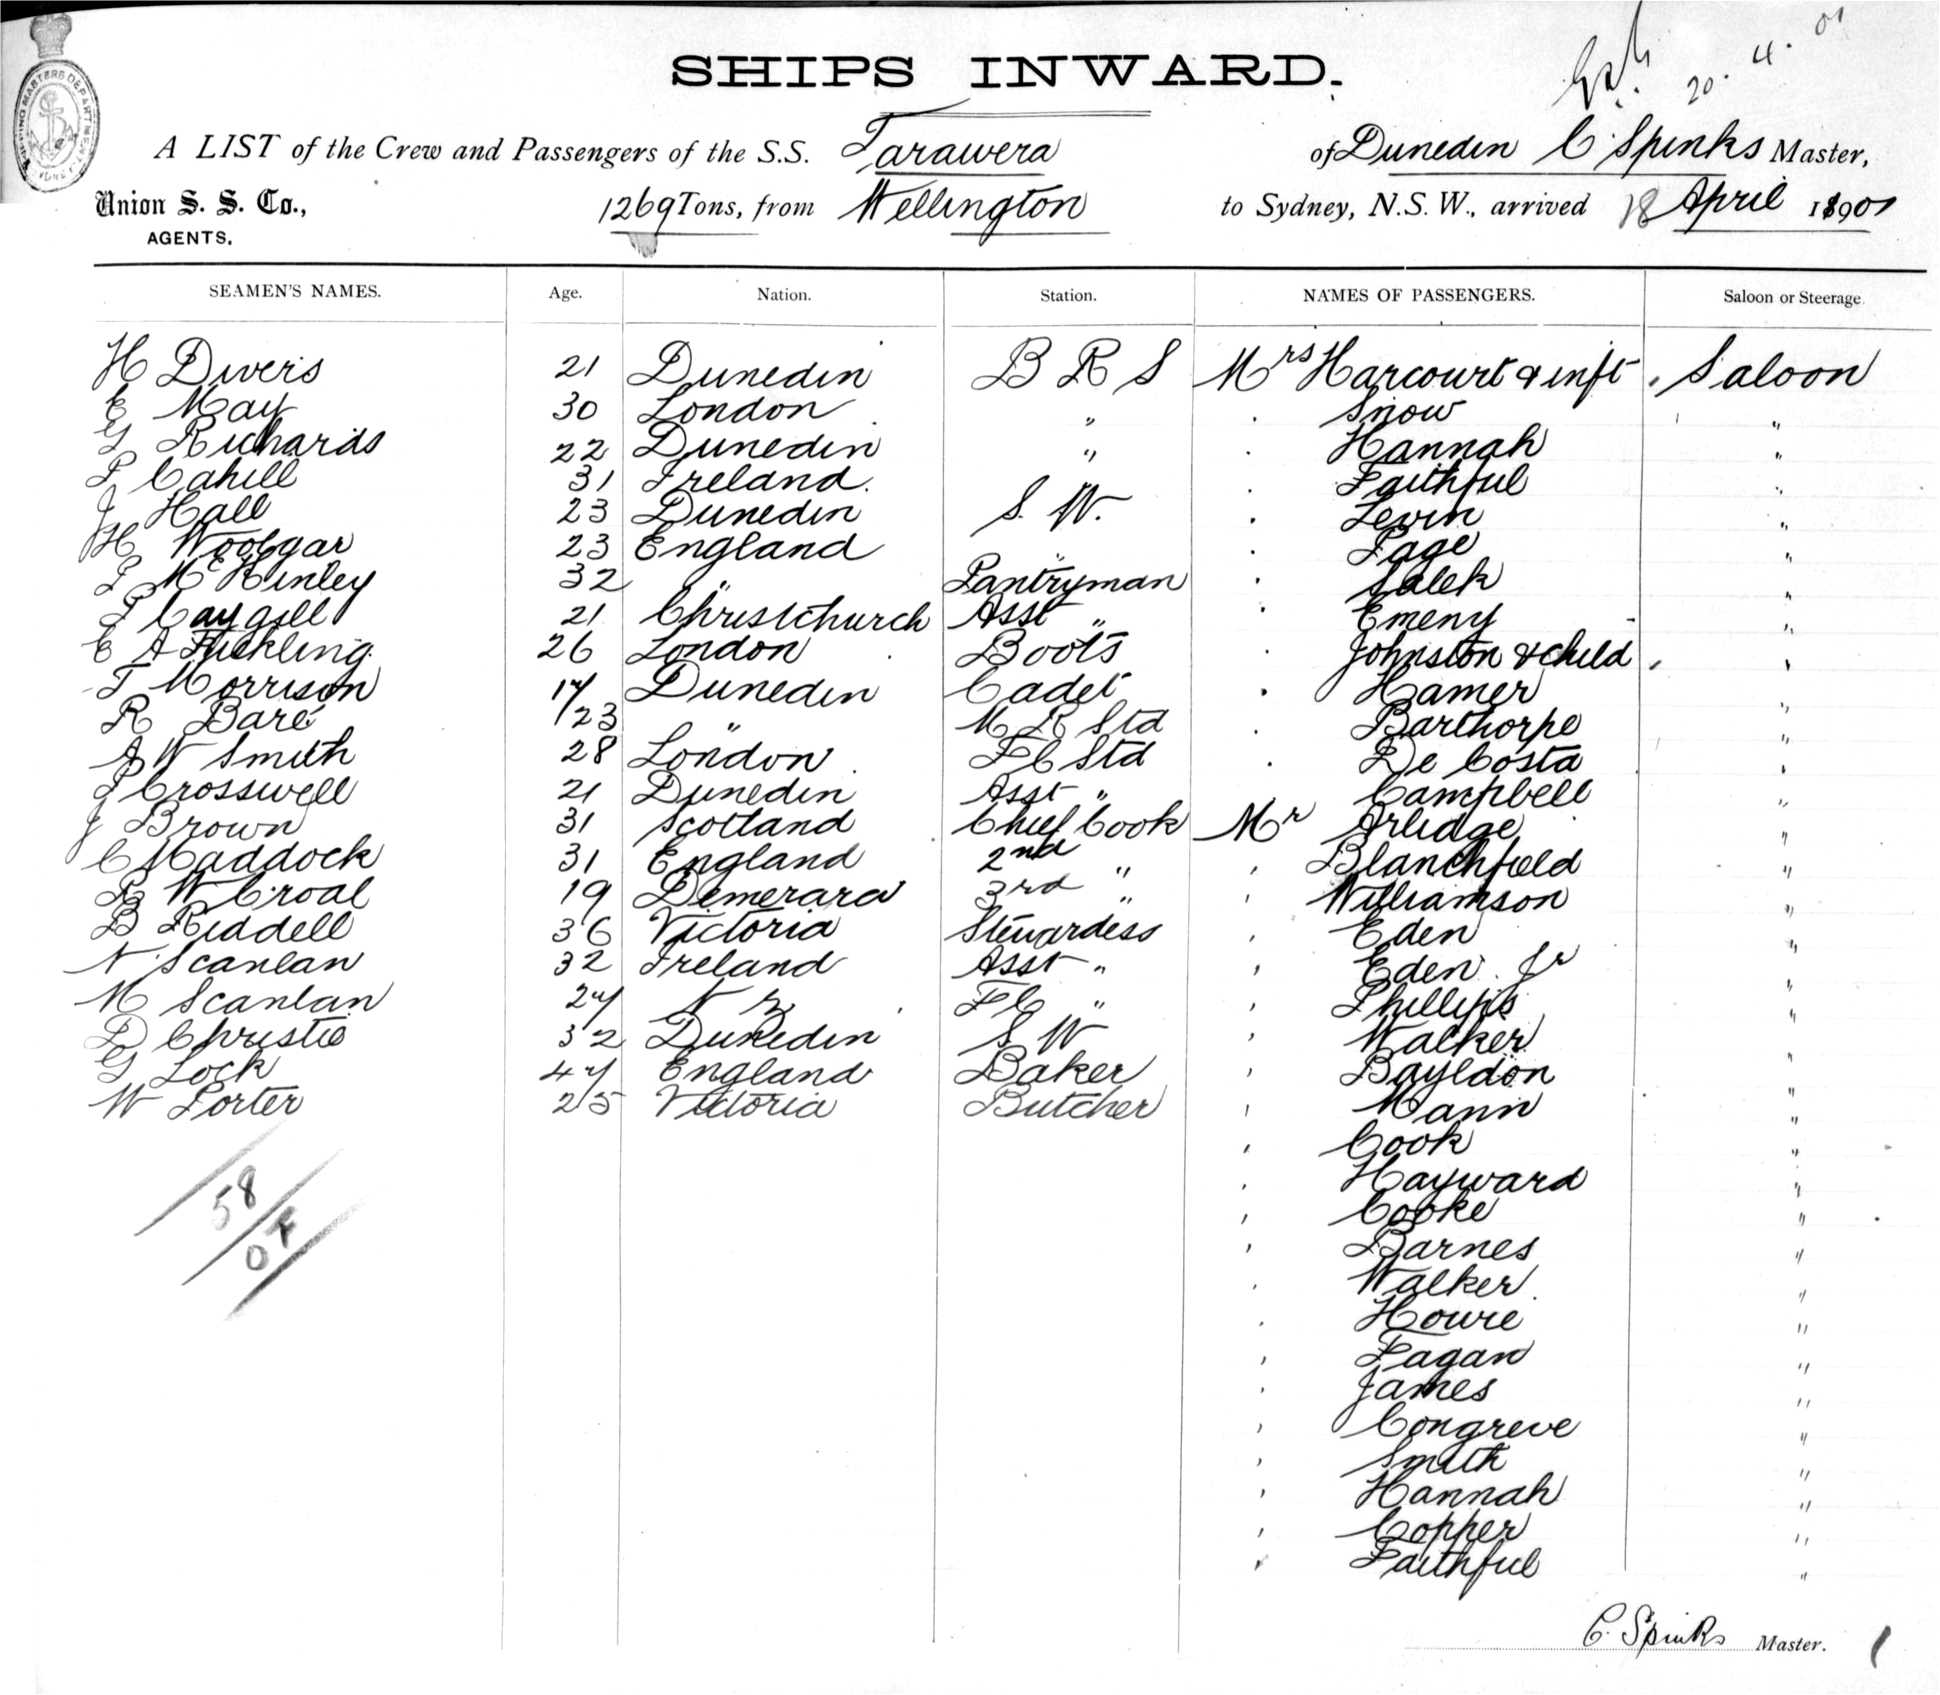 SHIPS INWARD.
20. 4. 01
A LIST of the Crew and Passengers of the S.S. Tarawera of Dunedin C Spinks Master,
Union S. S. Co., AGENTS. 1269 Tons, from Wellington to Sydney, N.S.W., arrived 18 April 1901
SEAMEN'S NAMES. Age. Nation. Station. NAMES OF PASSENGERS. Saloon or Steerage
H Divers 21 Dunedin B R S Mrs Harcourt & inft Saloon
E May 30 London " Snow "
G Richards 22 Dunedin " Hannah "
P Cahill 31 Ireland. Faithful "
J Hall 23 Dunedin S. W. Levin "
H Woolgar 23 England " Page "
P McKinley 32 " Pantryman Salek "
P Caygill 21 Christchurch Asst " Emeny "
C A Fickling 26 London Boots Johnston & child "
T Morrison 17 Dunedin Cadet Hamer "
R Bare 23 " M R Std Barthorpe "
A W Smith 28 London F C Std De Costa "
P Crosswell 21 Dunedin Asst " Campbell "
J Brown 31 Scotland Chief Cook Mr Arlidge "
C Maddock 31 England 2nd " Blanchfield "
R W Croal 19 Demerara 3rd " Williamson "
B Riddell 36 Victoria Stewardess Eden "
N Scanlan 32 Ireland Asst " Eden Jr "
M Scanlan 27 N Z F C " Phillips "
D Christie 32 Dunedin S W Walker "
G Lock 47 England Baker Bayldon "
W Porter 25 Victoria Butcher Mann "
Cook "
Hayward "
58
Cooke "
Barnes "
Walker "
Howie "
Fagan "
James "
Congreve "
Smith "
Hannah "
Copper "
Faithful "
C. Spinks Master.